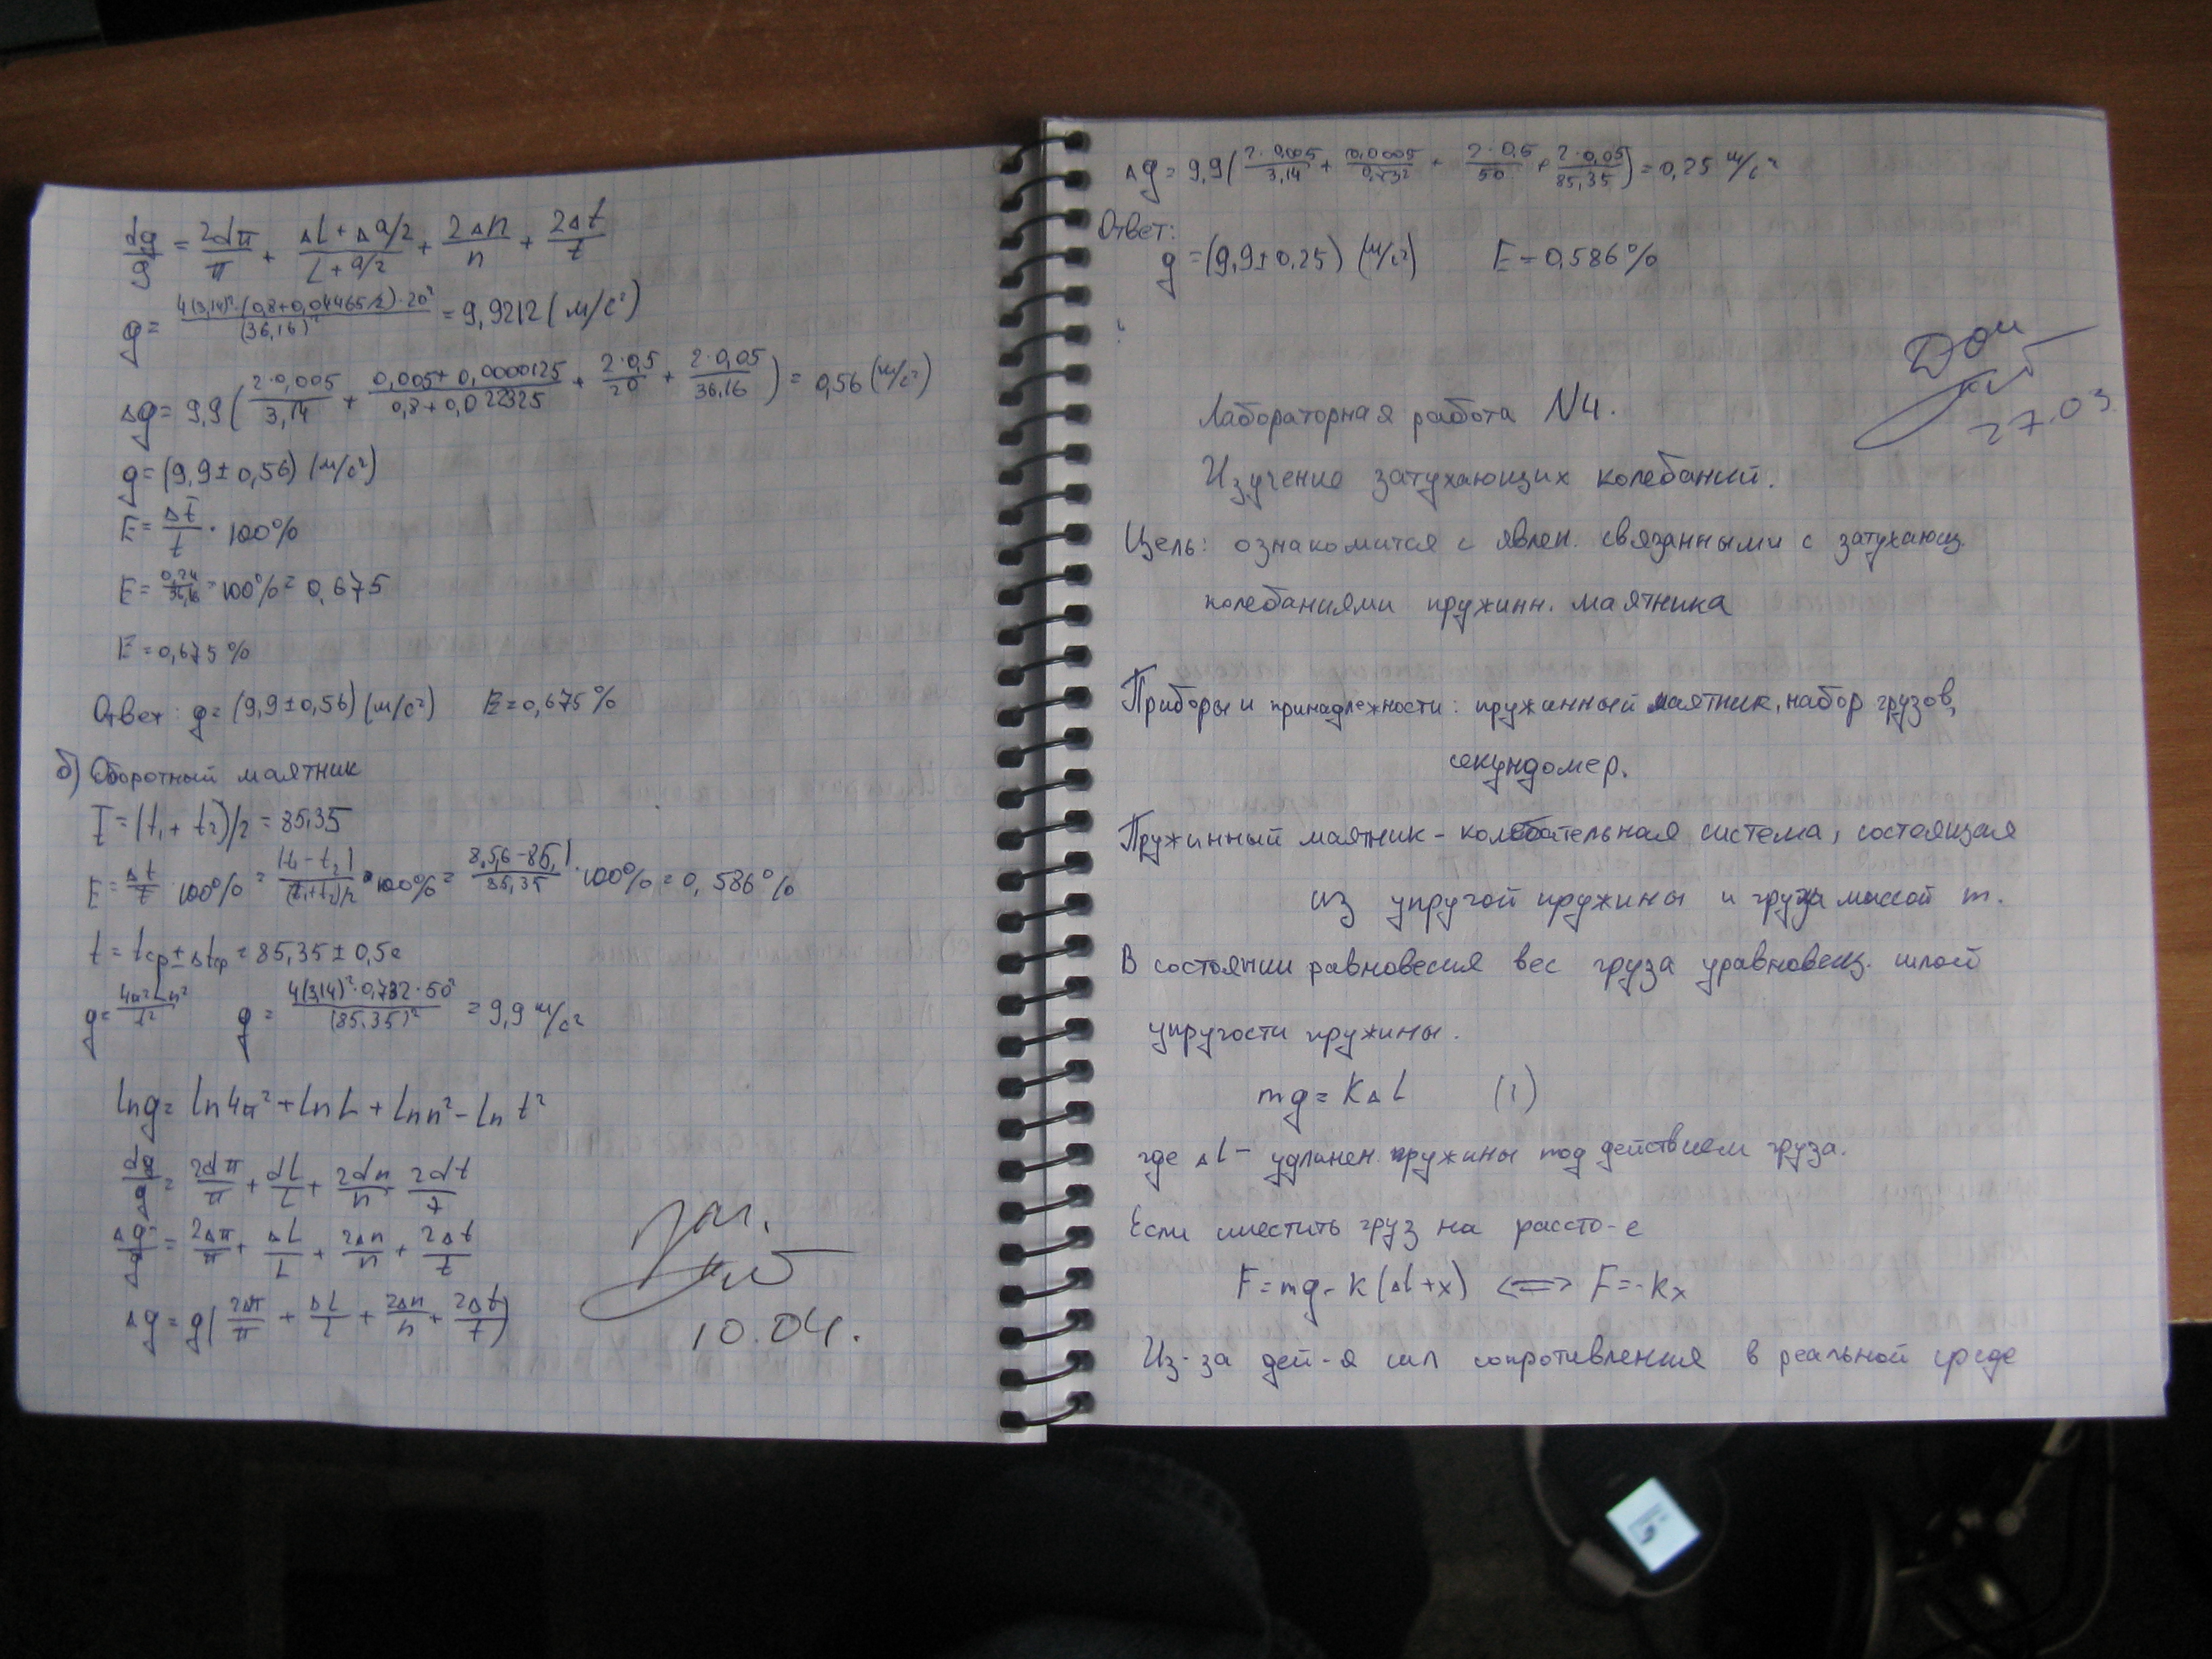 dg/g = 2dπ/π + (ΔL + Δa/2)/(L + a/2) + 2Δn/n + 2Δt/t
g = 4(3,14)²·(0,8+0,04465/2)·20²/(36,16)² = 9,9212 (м/с²)
Δg = 9,9(2·0,005/3,14 + (0,005+0,0000125)/(0,8+0,022325) + 2·0,5/20 + 2·0,05/36,16) = 0,56 (м/с²)
g = (9,9 ± 0,56) (м/с²)
E = Δt/t · 100%
E = 0,24/36,16 = 100% = 0,675
E = 0,675%
Ответ: g = (9,9 ± 0,56) (м/с²) E = 0,675%
б) Оборотный маятник
t = (t₁ + t₂)/2 = 85,35
E = Δt/t · 100% = |t₁ - t₂|/(t₁+t₂)/2 · 100% = 8,5,6-85,1/85,35 · 100% = 0,586%
t = tср ± Δtср = 85,35 ± 0,5с
g = 4π²Ln²/t² g = 4(3,14)²·0,732·50²/(85,35)² = 9,9 м/с²
lng = ln4π² + lnL + lnn² - lnt²
dg/g = 2dπ/π + dL/L + 2dn/n 2dt/t
Δg/g = 2Δπ/π + ΔL/L + 2Δn/n + 2Δt/t
Δg = g(2Δπ/π + ΔL/L + 2Δn/n + 2Δt/t)
10.04.
Δg = 9,9(2·0,005/3,14 + 0,0005/0,732 + 2·0,5/50 + 2·0,05/85,35) = 0,25 м/с²
Ответ:
g = (9,9 ± 0,25) (м/с²) E = 0,586%
Доп
27.03
Лабораторная работа N4.
Изучение затухающих колебаний.
Цель: ознакомится с явлен. связанными с затухающ.
колебаниями пружинн. маятника
Приборы и принадлежности: пружинный маятник, набор грузов,
секундомер.
Пружинный маятник - колебательная система, состоящая
из упругой пружины и груза массой m.
В состоянии равновесия вес груза уравновеш. силой
упругости пружины.
mg = KΔL (1)
где ΔL - удлинен. пружины под действием груза.
Если сместить груз на рассто-е
F = mg - k(ΔL+x) <=> F = -kx
Из-за дей-я сил сопротивления в реальной среде